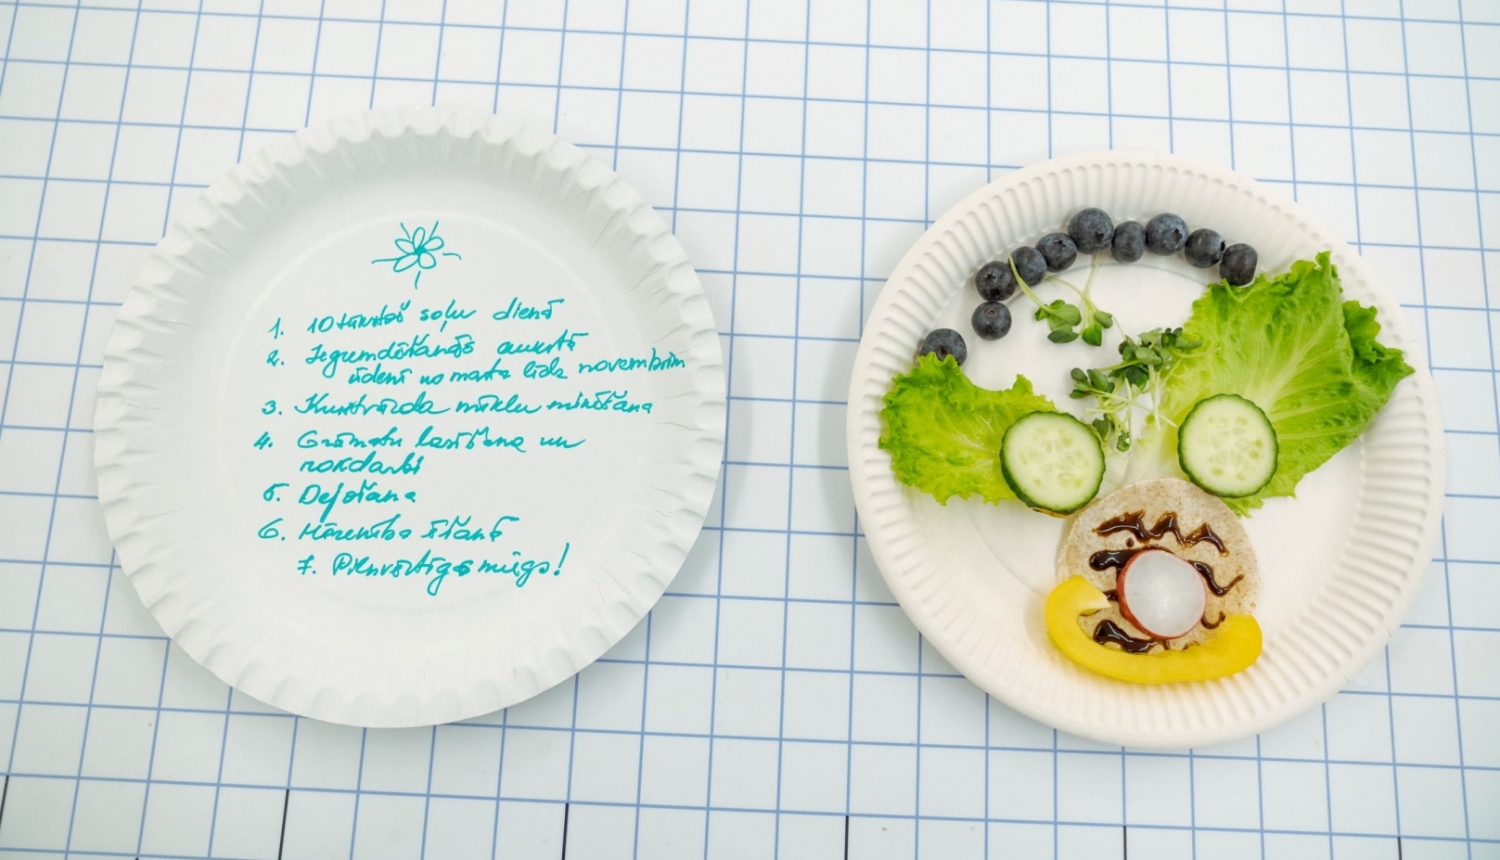 1. 10 tūkstoš soļu dienā
2. Iegremdēšanās aukstā
ūdenī no marta līdz novembrim
3. Krustvārdu mīklu minēšana
4. Grāmatu lasīšana un
rokdarbi
5. Dejošana
6. Mērenība ēšanā
7. Pilnvērtīgs miegs!